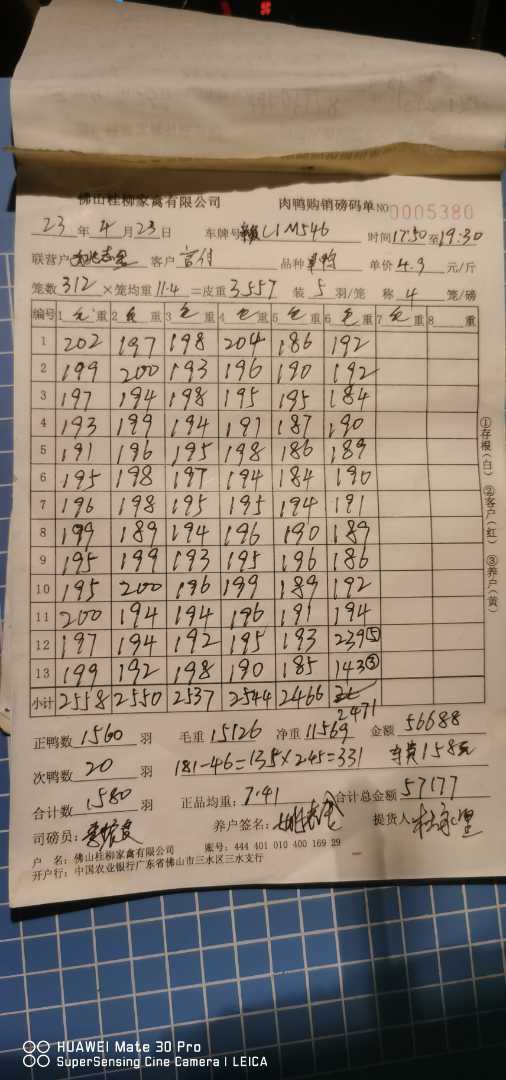 佛山桂柳家禽有限公司 肉鸭购销磅码单 NO 0005380
23 年 4 月 23 日 车牌号 U1M546 时间 17:50 至 19:30
联营户 客户 品种 单价 4.9 元/斤
笼数 312 ×笼均重 11.4 =皮重 3557 装 5 羽/笼 称 4 笼/磅
编号 1 毛 重 2 毛 重 3 毛 重 4 毛 重 5 毛 重 6 毛 重 7 毛 重 8 重
1 202 197 198 204 186 192
2 199 200 193 196 190 192
3 197 194 198 195 195 184
4 193 199 194 197 187 190
5 191 196 195 198 186 189
6 195 198 197 194 184 190
7 196 198 195 195 194 191
8 199 189 194 196 190 189
9 195 199 193 195 196 186
10 195 200 196 199 189 192
11 200 194 194 196 191 194
12 197 194 192 195 193 239⑤
13 199 192 198 190 185 143③
小计 2558 2550 2537 2544 2466
2471
正鸭数 1560 羽 毛重 15126 净重 11569 金额 56688
次鸭数 20 羽 181-46=135×2.45=331 158元
合计数 1580 羽 正品均重: 7.41 合计总金额 57177
司磅员: 养户签名: 提货人
户 名: 佛山桂柳家禽有限公司 账号: 444 401 010 400 169 29
开户行: 中国农业银行广东省佛山市三水区三水支行
①存根(白) ②客户(红) ③养户(黄)
HUAWEI Mate 30 Pro
SuperSensing Cine Camera | LEICA